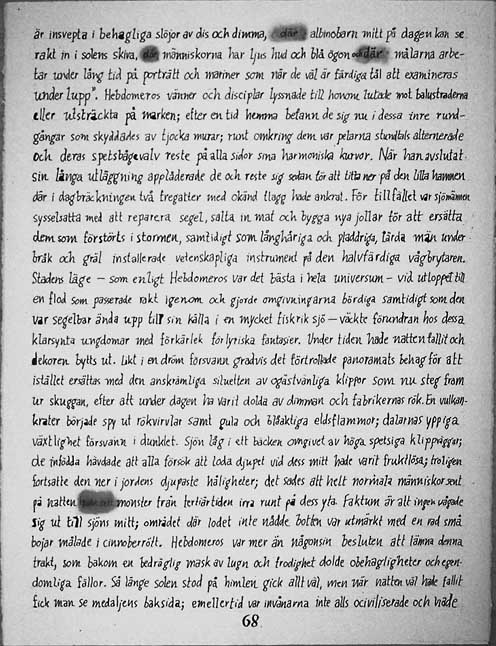 är insvepta i behagliga slöjor av dis och dimma, där albinobarn mitt på dagen kan se
rakt in i solens skiva, där människorna har ljus hud och blå ögon och där målarna arbe-
tar under lång tid på porträtt och mariner som när de väl är färdiga tål att examineras
under lupp". Hebdomeros vänner och disciplar lyssnade till honom lutade mot balustraderna
eller utsträckta på marken; efter en tid hemma befann de sig nu i dessa inre rund-
gångar som skyddades av tjocka murar; runt omkring dem var pelarna stundtals alternerade
och deras spetsbågevalv reste på alla sidor sina harmoniska kurvor. När han avslutat
sin långa utläggning applåderade de och reste sig sedan för att titta ner på den lilla hamnen
där i dagbräckningen två fregatter med okänd flagg hade ankrat. För tillfället var sjömännen
sysselsatta med att reparera segel, salta in mat och bygga nya jollar för att ersätta
dem som förstörts i stormen, samtidigt som långhåriga och pladdriga, lärda män under
bråk och gräl installerade vetenskapliga instrument på den halvfärdiga vågbrytaren.
Stadens läge – som enligt Hebdomeros var det bästa i hela universum – vid utloppet till
en flod som passerade rakt igenom och gjorde omgivningarna bördiga samtidigt som den
var segelbar ända upp till sin källa i en mycket fiskrik sjö – väckte förundran hos dessa
klarsynta ungdomar med förkärlek för lyriska fantasier. Under tiden hade natten fallit och
dekoren bytts ut. Likt i en dröm försvann gradvis det förtrollade panoramats behag för att
istället ersättas med den anskrämliga siluetten av ogästvänliga klippor som nu steg fram
ur skuggan, efter att under dagen ha varit dolda av dimman och fabrikernas rök. En vulkan-
krater började spy ut rökvirvlar samt gula och blåaktiga eldsflammor; dalarnas yppiga
växtlighet försvann i dunklet. Sjön låg i ett bäcken omgivet av höga spetsiga klippväggar;
de infödda hävdade att alla försök att loda djupet vid dess mitt hade varit fruktlösa; troligen
fortsatte den ner i jordens djupaste håligheter; det sades att helt normala människor sent
på natten monster från tertiärtiden irra runt på dess yta. Faktum är att ingen vågade
sig ut till sjöns mitt; området där lodet inte nådde botten var utmärkt med en rad små
bojar målade i cinnoberrött. Hebdomeros var mer än någonsin besluten att lämna denna
trakt, som bakom en bedräglig mask av lugn och frodighet dolde obehagligheter och egen-
domliga fällor. Så länge solen stod på himlen gick allt väl, men när natten väl hade fallit
fick man se medaljens baksida; emellertid var invånarna inte alls ociviliserade och hade
68